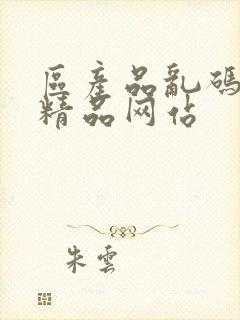 区產品亂碼
精品网佔
朱雲